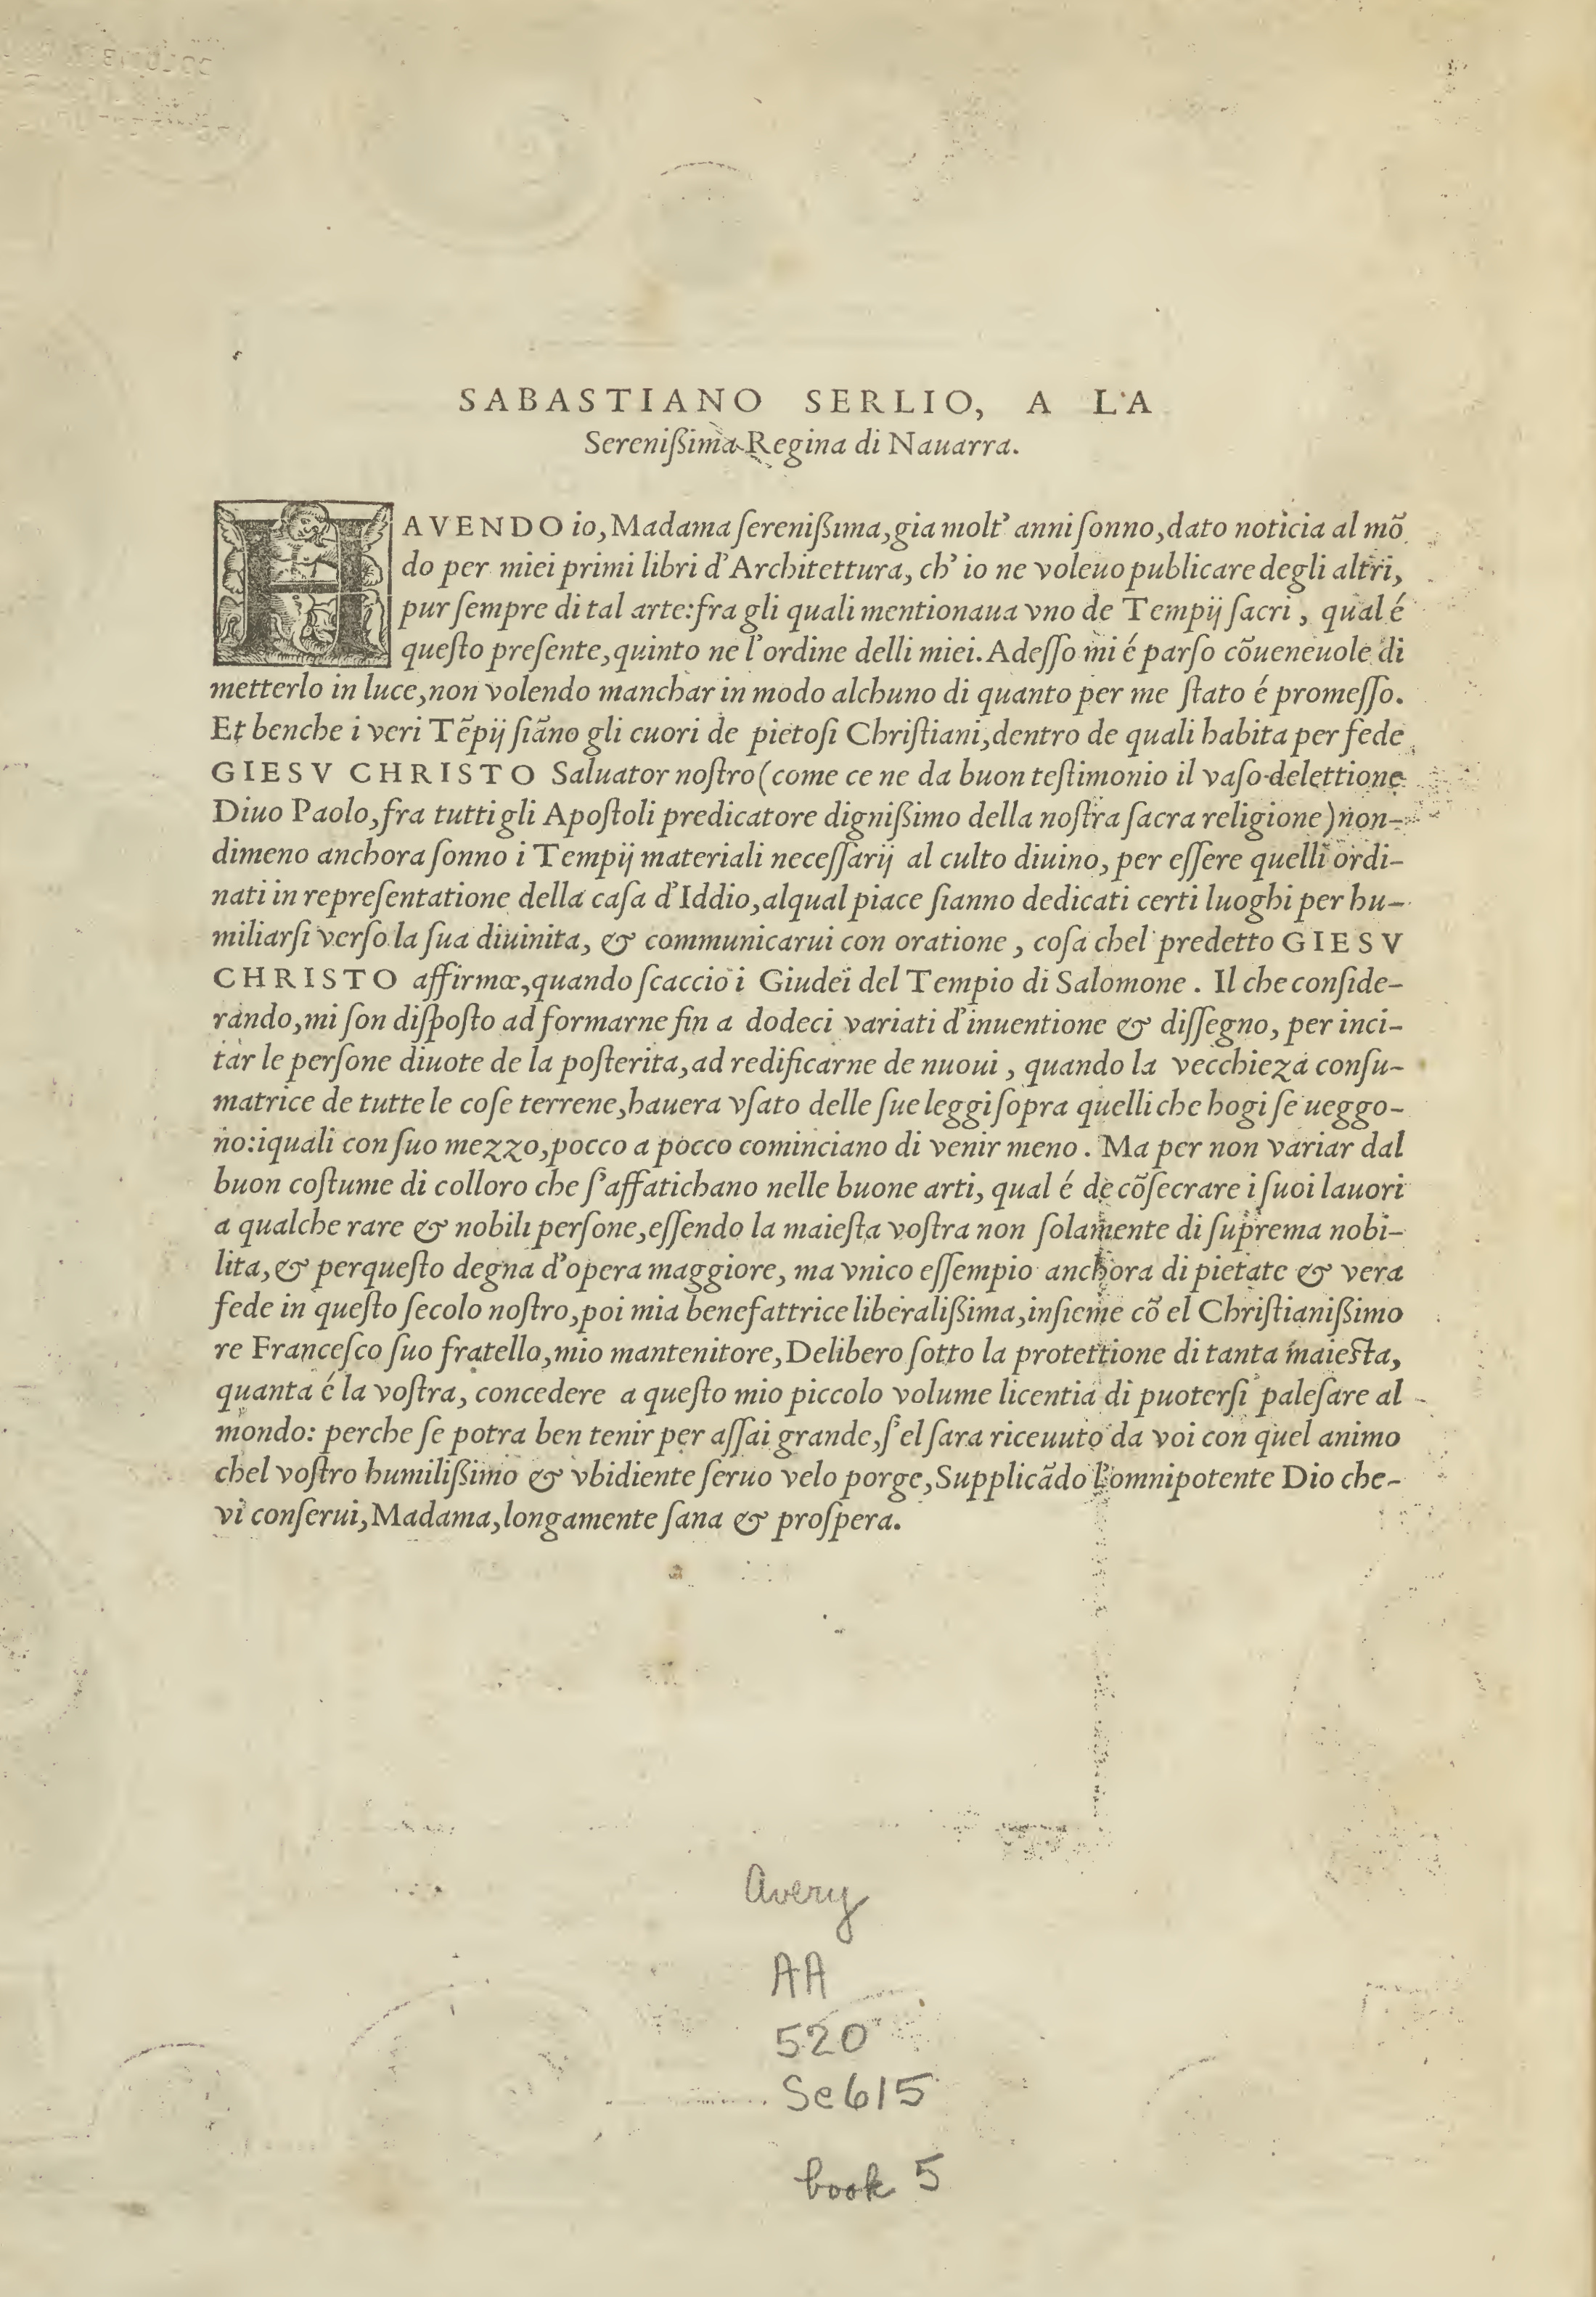 SABASTIANO SERLIO, A L'A
Sereniſsima Regina di Nauarra.
HAVENDO io, Madama ſereniſsima, gia molt' anni ſonno, dato noticia al mõ
do per miei primi libri d'Architettura, ch' io ne voleuo publicare degli altri,
pur ſempre di tal arte: fra gli quali mentionaua vno de Tempij ſacri, qual é
queſto preſente, quinto ne l'ordine delli miei. Adeſſo mi é parſo cõueneuole di
metterlo in luce, non volendo manchar in modo alchuno di quanto per me ſtato é promeſſo.
Et benche i veri Tẽpij ſiãno gli cuori de pietoſi Chriſtiani, dentro de quali habita per fede
GIESV CHRISTO Saluator noſtro (come ce ne da buon teſtimonio il vaſo delettione
Diuo Paolo, fra tutti gli Apoſtoli predicatore digniſsimo della noſtra ſacra religione) non-
dimeno anchora ſonno i Tempij materiali neceſſarij al culto diuino, per eſſere quelli ordi-
nati in repreſentatione della caſa d'Iddio, alqual piace ſianno dedicati certi luoghi per hu-
miliarſi verſo la ſua diuinita, & communicarui con oratione, coſa chel predetto GIESV
CHRISTO affirmæ, quando ſcaccio i Giudei del Tempio di Salomone. Il che conſide-
rando, mi ſon diſpoſto ad formarne fin a dodeci variati d'inuentione & diſſegno, per inci-
tar le perſone diuote de la poſterita, ad redificarne de nuoui, quando la vecchieza conſu-
matrice de tutte le coſe terrene, hauera vſato delle ſue leggi ſopra quelli che hogi ſe ueggo-
no: iquali con ſuo mezzo, pocco a pocco cominciano di venir meno. Ma per non variar dal
buon coſtume di colloro che ſ'affatichano nelle buone arti, qual é de cõſecrare i ſuoi lauori
a qualche rare & nobili perſone, eſſendo la maieſta voſtra non ſolamente di ſuprema nobi-
lita, & perqueſto degna d'opera maggiore, ma vnico eſſempio anchora di pietate & vera
fede in queſto ſecolo noſtro, poi mia benefattrice liberaliſsima, inſieme cõ el Chriſtianiſsimo
re Franceſco ſuo fratello, mio mantenitore, Delibero ſotto la protettione di tanta maieſta,
quanta é la voſtra, concedere a queſto mio piccolo volume licentia di puoterſi paleſare al
mondo: perche ſe potra ben tenir per aſſai grande, ſ'el ſara riceuuto da voi con quel animo
chel voſtro humiliſsimo & vbidiente ſeruo velo porge, Supplicãdo l'omnipotente Dio che-
vi conſerui, Madama, longamente ſana & proſpera.
Avery
AA
520
Se615
book 5